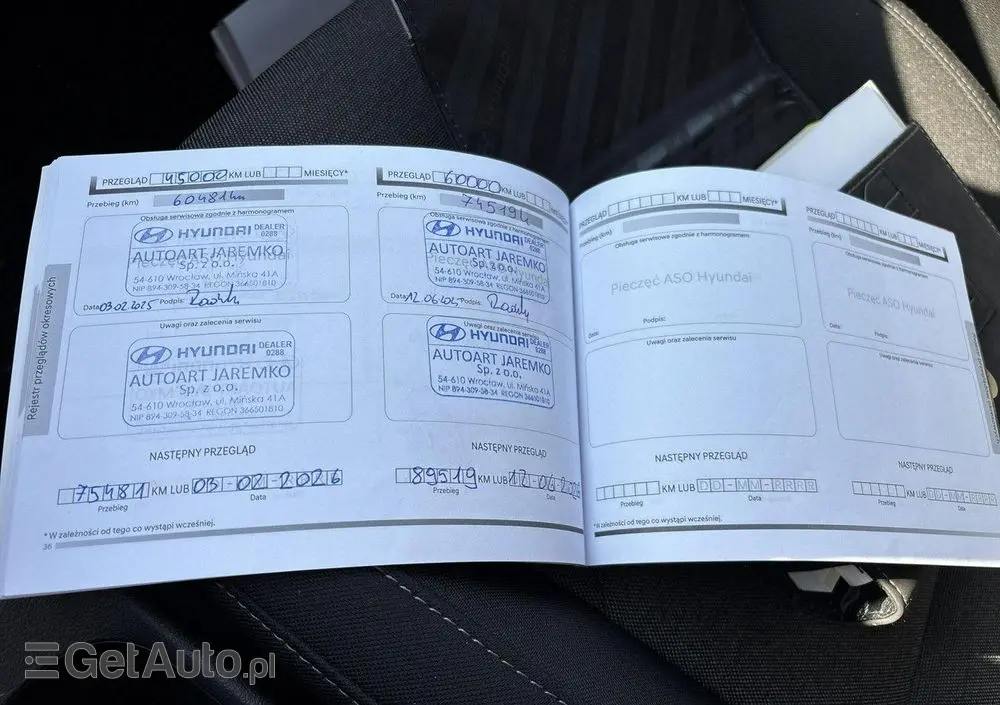 PRZEGLĄD 45000 KM LUB MIESIĘCY*
Przebieg (km) 60481 km
Obsługa serwisowa zgodnie z harmonogramem
HYUNDAI DEALER 0288
AUTOART JAREMKO
Sp. z o.o.
54-610 Wrocław, ul. Mińska 41A
NIP 894-309-58-34 REGON 366501810
Data: 03.02.2025 Podpis:
Uwagi oraz zalecenia serwisu
HYUNDAI DEALER 0288
AUTOART JAREMKO
Sp. z o.o.
54-610 Wrocław, ul. Mińska 41A
NIP 894-309-58-34 REGON 366501810
NASTĘPNY PRZEGLĄD
75481 KM LUB 03-02-2026
Przebieg Data
* W zależności od tego co wystąpi wcześniej.
36
Rejestr przeglądów okresowych
PRZEGLĄD 60000 KM LUB
Przebieg (km) 74519 k
Obsługa serwisowa zgodnie z harmonogramem
HYUNDAI DEALER 0288
AUTOART JAREMKO
Sp. z o.o.
54-610 Wrocław, ul. Mińska 41A
NIP 894-309-58-34 REGON 366501810
Data: 12.06.2025 Podpis:
Uwagi oraz zalecenia serwisu
HYUNDAI DEALER 0288
AUTOART JAREMKO
Sp. z o.o.
54-610 Wrocław, ul. Mińska 41A
NIP 894-309-58-34 REGON 366501810
NASTĘPNY PRZEGLĄD
89519 KM LUB 12-06-2026
Przebieg Data
PRZEGLĄD KM LUB MIESIĘCY*
Przebieg (km)
Obsługa serwisowa zgodnie z harmonogramem
Pieczęć ASO Hyundai
Data: Podpis:
Uwagi oraz zalecenia serwisu
NASTĘPNY PRZEGLĄD
KM LUB DD-MM-RRRR
Przebieg Data
* W zależności od tego co wystąpi wcześniej.
PRZEGLĄD KM LUB MIESIĘCY*
Przebieg (km)
Obsługa serwisowa zgodnie z harmonogramem
Pieczęć ASO Hyundai
Data: Podpis:
Uwagi oraz zalecenia serwisu
NASTĘPNY PRZEGLĄD
KM LUB DD-MM-RRRR
Przebieg Data
GetAuto.pl